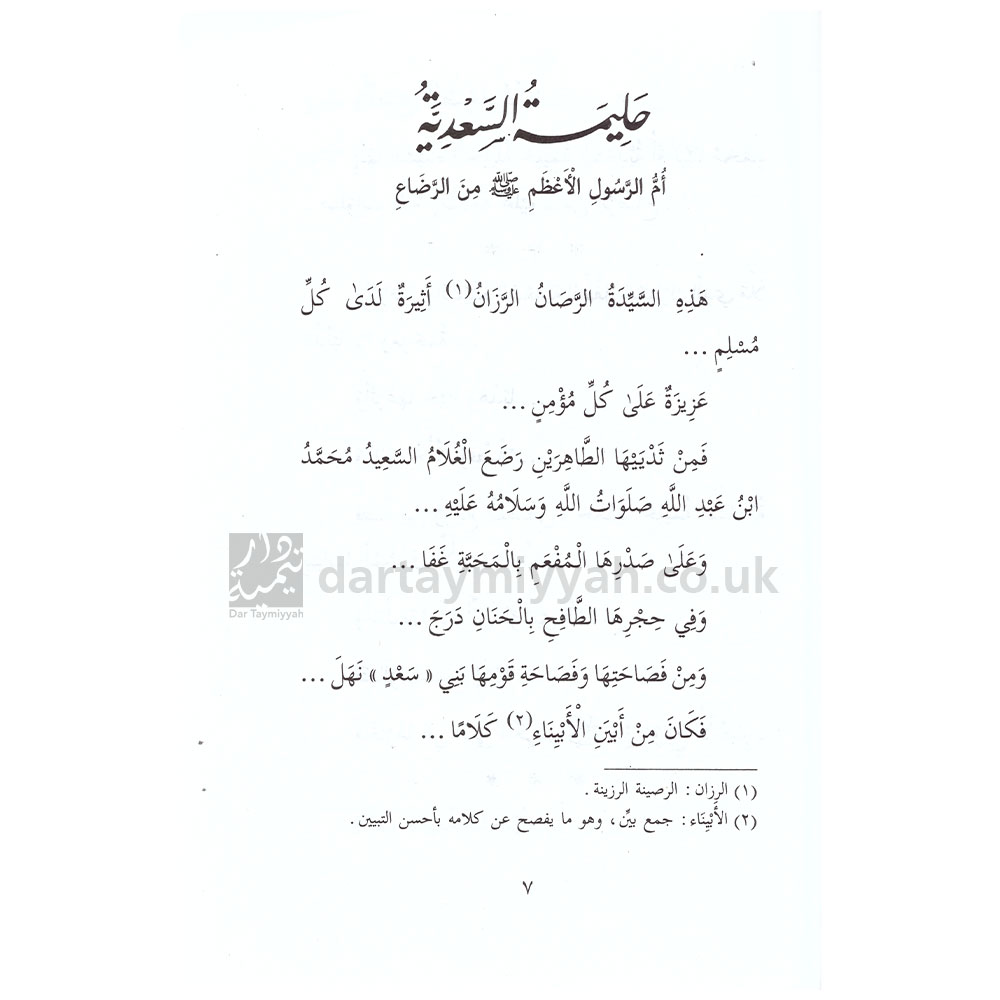 حَلِيمَةُ السَّعْدِيَّةُ
أُمُّ الرَّسُولِ الْأَعْظَمِ ﷺ مِنَ الرَّضَاعِ
هَذِهِ السَّيِّدَةُ الرَّصَانُ الرَّزَانُ(١) أَثِيرَةٌ لَدَىٰ كُلِّ
مُسْلِمٍ ...
عَزِيزَةٌ عَلَىٰ كُلِّ مُؤْمِنٍ ...
فَمِنْ ثَدْيَيْهَا الطَّاهِرَيْنِ رَضَعَ الْغُلَامُ السَّعِيدُ مُحَمَّدُ
ابْنُ عَبْدِ اللَّهِ صَلَوَاتُ اللَّهِ وَسَلَامُهُ عَلَيْهِ ...
وَعَلَىٰ صَدْرِهَا الْمُفْعَمِ بِالْمَحَبَّةِ غَفَا ...
دار تيمية
Dar Taymiyyah
dartaymiyyah.co.uk
وَفِي حِجْرِهَا الطَّافِحِ بِالْحَنَانِ دَرَجَ ...
وَمِنْ فَصَاحَتِهَا وَفَصَاحَةِ قَوْمِهَا بَنِي « سَعْدٍ » نَهَلَ ...
فَكَانَ مِنْ أَبْيَنِ الْأَبْيِنَاءِ(٢) كَلَامًا ...
(١) الرزان : الرصينة الرزينة .
(٢) الأَبْيِنَاء : جمع بيِّن ، وهو ما يفصح عن كلامه بأحسن التبيين .
٧